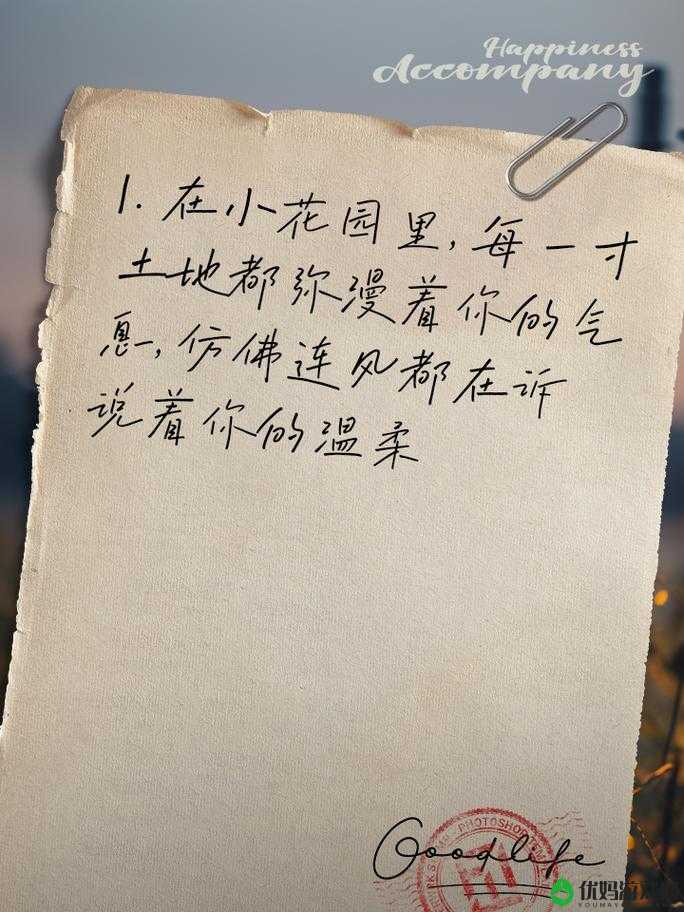 Happiness
Accompany
1. 在小花园里，每一寸
土地都弥漫着你的气
息，仿佛连风都在诉
说着你的温柔
PHOTOSHOP
Goodlife
优妈游戏
YOUMAYO